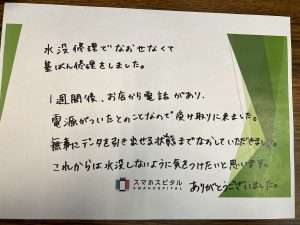 水没修理でなおせなくて
基ばん修理をしました。
1週間後、お店から電話があり、
電源がついたとのことなので受け取りに来ました。
無事にデータを引き出せる状態までなおしていただきました。
これからは水没しないように気をつけたいと思います。
スマホスピタル
SMAHOSPITAL
ありがとうございました。